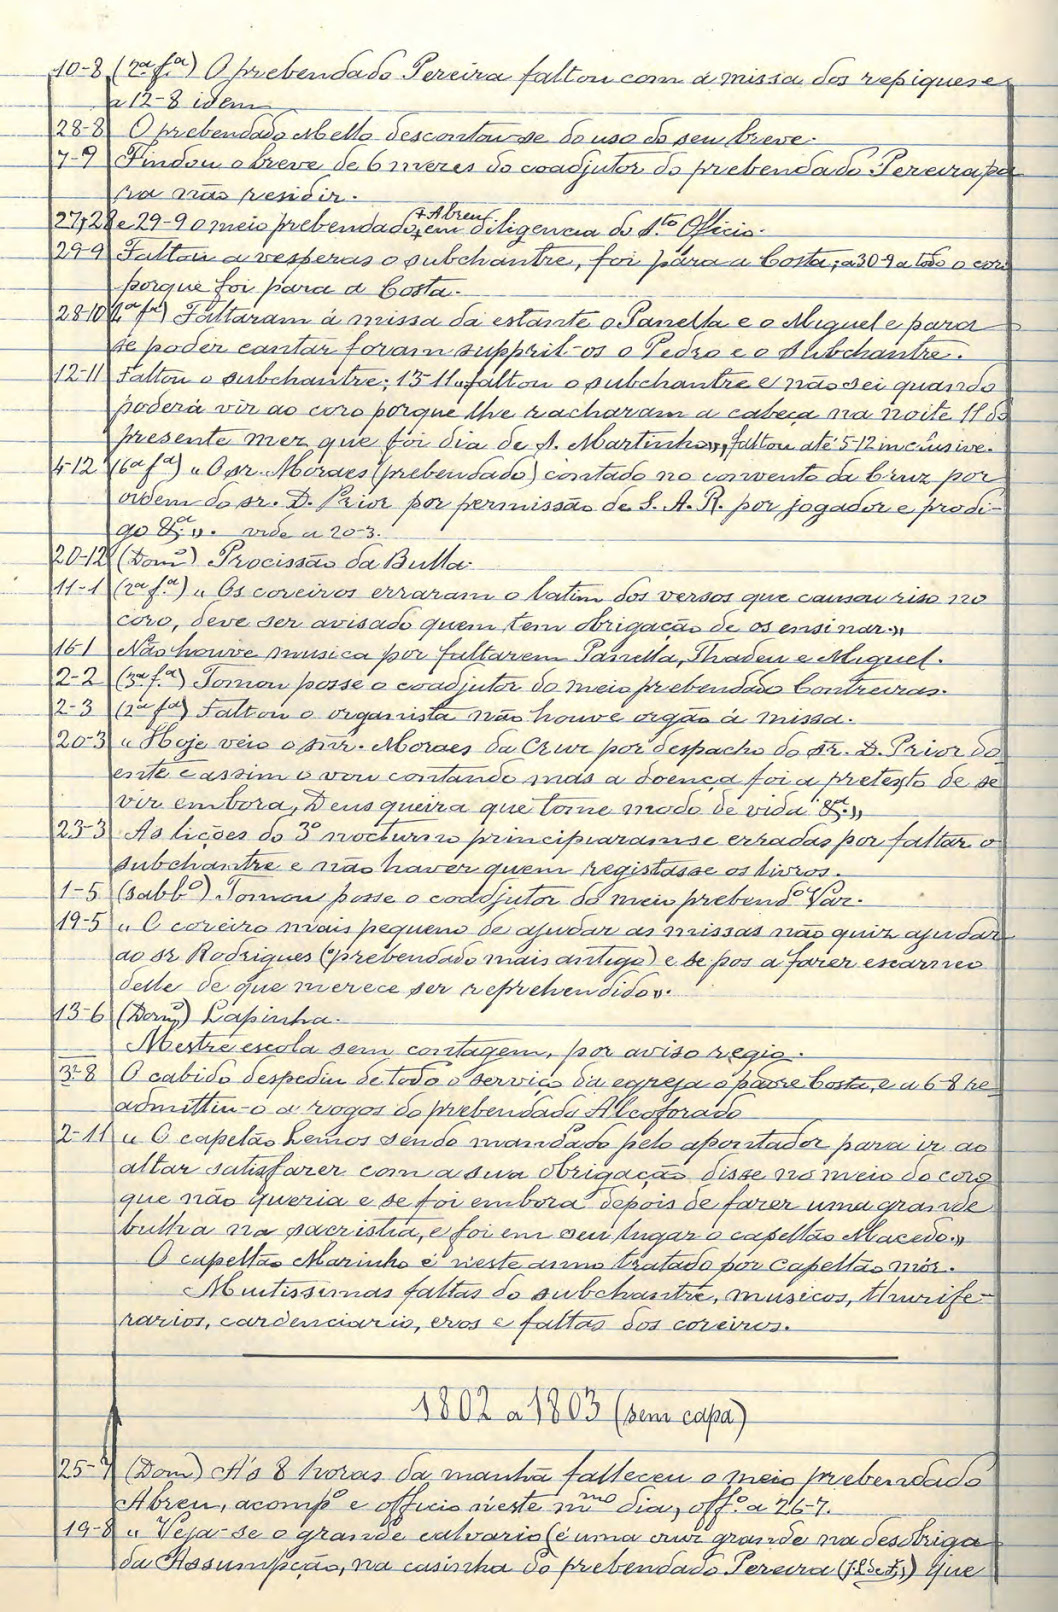 10-8 (2ª f.ª) O prebendado Pereira faltou com á missa dos repiques e
a 12-8 idem
28-8 O prebendado Mello descontou-se do uso do seu breve.
7-9 Findou o breve de 6 mezes do coadjutor do prebendado Pereira pa
ra não residir.
27, 28 e 29-9 o meio prebendado + Abreu + em diligencia do S.to Officio.
29-9 Faltou a vesperas o subchantre, foi para a Costa; a 30-9 a todo o coro
porque foi para a Costa.
28-10 (4ª fª) Faltaram á missa da estante o Panella e o Miguel e para
se poder cantar foram suppril-os o Pedro e o subchantre.
12-11 Faltou o subchantre; 13-11 "faltou o subchantre e não sei quando
poderá vir ao coro porque lhe racharam a cabeça na noite 11 do
presente mez que foi dia de S. Martinho", faltou até 5-12 inclusive.
4-12 (6ª fª) "O sr. Moraes (prebendado) contado no convento da Cruz por
ordem do sr. D. Prior por permissão de S. A. R. por jogador e prodi-
go &.ª". vide a 20-3.
20-12 (Domº) Procissão da Bulla.
11-1 (2ª f.ª) "Os coreiros erraram o latim dos versos que causou riso no
coro, deve ser avisado quem tem obrigação de os ensinar."
16-1 Não houve musica por faltarem Panella, Thadeu e Miguel.
2-2 (3ª f.ª) Tomou posse o coadjutor do meio prebendado Contreiras.
2-3 (2ª fª) Faltou o organista não houve orgão á missa.
20-3 "Hoje veio o snr. Moraes da Cruz por despacho do sr. D. Prior do
ente e assim o vou contando mas a doença foi a pretexto de se
vir embora, Deus queira que tome modo de vida &.ª"
23-3 As lições do 3º nocturno principiaram-se erradas por faltar o
subchantre e não haver quem registasse os livros.
1-5 (sabbº) Tomou posse o coadjutor do meio prebendº Vaz.
19-5 "O coreiro mais pequeno de ajudar as missas não quiz ajudar
ao sr Rodrigues (prebendado mais antigo) e se pos a fazer escarneo
delle de que merece ser reprehendido".
13-6 (Domº) Lapinha.
Mestre escola sem contagem, por aviso regio.
3-8 O cabido despediu de todo o serviço da egreja o padre Costa, e a 6-8 re-
admittiu-o a rogos do prebendado Alcoforado
2-11 "O capelão Lemos sendo mandado pelo apontador para ir ao
altar satisfazer com a sua obrigação disse no meio do coro
que não queria e se foi embora depois de fazer uma grande
bulha na sacristia, e foi em seu lugar o capellão Macedo."
O capellão Marinho é n'este anno tratado por capellão mór.
Muitissimas faltas do subchantre, musicos, thurife-
rarios, cardenciario, eros e faltas dos coreiros.
1802 a 1803 (sem capa)
25-7 (Dom) A's 8 horas da manhã falleceu o meio prebendado
Abreu, acompº e officio n'este mmo dia, offº. a 26-7.
19-8 "Veja-se o grande calvario (é uma cruz grande na desobriga
da Assumpção, na casinha do prebendado Pereira que